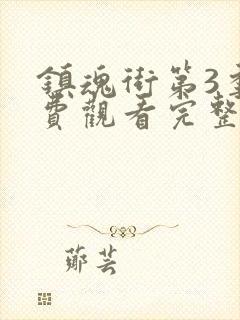 鎮魂街第3季
費觀看完整
鄭芸